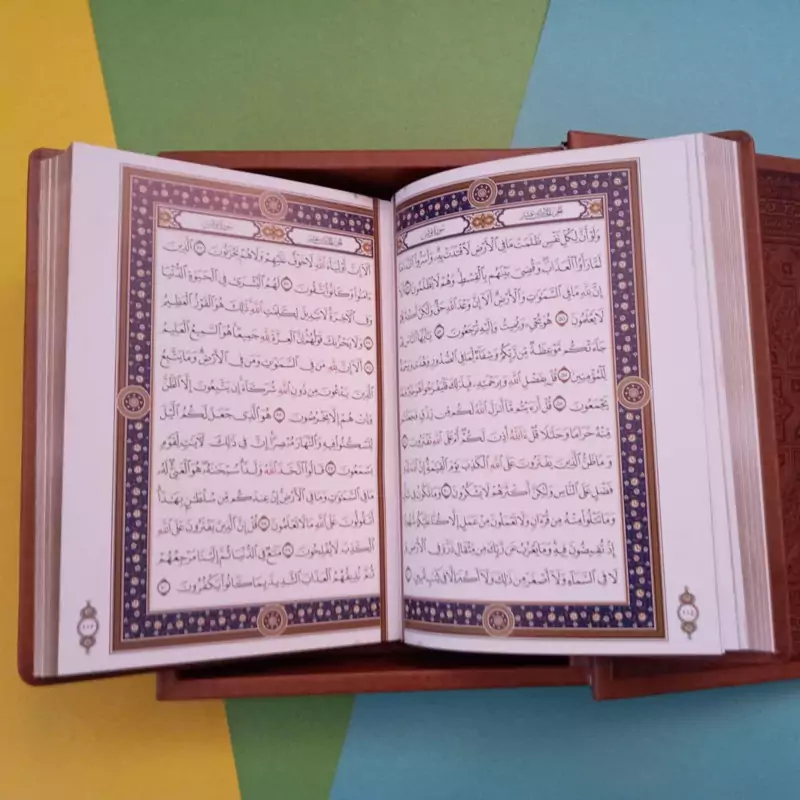 الجزء الحادي عشر
سورة يونس
وَلَوْ أَنَّ لِكُلِّ نَفْسٍ ظَلَمَتْ مَا فِي الْأَرْضِ لَافْتَدَتْ بِهِ وَأَسَرُّوا النَّدَامَةَ
لَمَّا رَأَوُا الْعَذَابَ وَقُضِيَ بَيْنَهُم بِالْقِسْطِ وَهُمْ لَا يُظْلَمُونَ ٥٤ أَلَا
إِنَّ لِلَّهِ مَا فِي السَّمَوَاتِ وَالْأَرْضِ أَلَا إِنَّ وَعْدَ اللَّهِ حَقٌّ وَلَكِنَّ أَكْثَرَهُمْ
لَا يَعْلَمُونَ ٥٥ هُوَ يُحْيِي وَيُمِيتُ وَإِلَيْهِ تُرْجَعُونَ ٥٦ يَا أَيُّهَا النَّاسُ قَدْ
جَاءَتْكُم مَّوْعِظَةٌ مِّن رَّبِّكُمْ وَشِفَاءٌ لِّمَا فِي الصُّدُورِ وَهُدًى وَرَحْمَةٌ
لِّلْمُؤْمِنِينَ ٥٧ قُلْ بِفَضْلِ اللَّهِ وَبِرَحْمَتِهِ فَبِذَلِكَ فَلْيَفْرَحُوا هُوَ خَيْرٌ مِّمَّا
يَجْمَعُونَ ٥٨ قُلْ أَرَأَيْتُم مَّا أَنزَلَ اللَّهُ لَكُم مِّن رِّزْقٍ فَجَعَلْتُم
مِّنْهُ حَرَامًا وَحَلَالًا قُلْ آللَّهُ أَذِنَ لَكُمْ أَمْ عَلَى اللَّهِ تَفْتَرُونَ ٥٩
وَمَا ظَنُّ الَّذِينَ يَفْتَرُونَ عَلَى اللَّهِ الْكَذِبَ يَوْمَ الْقِيَامَةِ إِنَّ اللَّهَ لَذُو
فَضْلٍ عَلَى النَّاسِ وَلَكِنَّ أَكْثَرَهُمْ لَا يَشْكُرُونَ ٦٠ وَمَا تَكُونُ فِي شَأْنٍ
وَمَا تَتْلُوا مِنْهُ مِن قُرْآنٍ وَلَا تَعْمَلُونَ مِنْ عَمَلٍ إِلَّا كُنَّا عَلَيْكُمْ شُهُودًا
إِذْ تُفِيضُونَ فِيهِ وَمَا يَعْزُبُ عَن رَّبِّكَ مِن مِّثْقَالِ ذَرَّةٍ فِي الْأَرْضِ وَ
لَا فِي السَّمَاءِ وَلَا أَصْغَرَ مِن ذَلِكَ وَلَا أَكْبَرَ إِلَّا فِي كِتَابٍ مُّبِينٍ ٦١
٢١٥
الجزء الحادي عشر
سورة يونس
أَلَا إِنَّ أَوْلِيَاءَ اللَّهِ لَا خَوْفٌ عَلَيْهِمْ وَلَا هُمْ يَحْزَنُونَ ٦٢ الَّذِينَ
آمَنُوا وَكَانُوا يَتَّقُونَ ٦٣ لَهُمُ الْبُشْرَى فِي الْحَيَوةِ الدُّنْيَا
وَفِي الْآخِرَةِ لَا تَبْدِيلَ لِكَلِمَاتِ اللَّهِ ذَلِكَ هُوَ الْفَوْزُ الْعَظِيمُ
٦٤ وَلَا يَحْزُنكَ قَوْلُهُمْ إِنَّ الْعِزَّةَ لِلَّهِ جَمِيعًا هُوَ السَّمِيعُ الْعَلِيمُ
٦٥ أَلَا إِنَّ لِلَّهِ مَن فِي السَّمَوَاتِ وَمَن فِي الْأَرْضِ وَمَا يَتَّبِعُ
الَّذِينَ يَدْعُونَ مِن دُونِ اللَّهِ شُرَكَاءَ إِن يَتَّبِعُونَ إِلَّا الظَّنَّ
وَإِنْ هُمْ إِلَّا يَخْرُصُونَ ٦٦ هُوَ الَّذِي جَعَلَ لَكُمُ اللَّيْلَ
لِتَسْكُنُوا فِيهِ وَالنَّهَارَ مُبْصِرًا إِنَّ فِي ذَلِكَ لَآيَاتٍ لِّقَوْمٍ
يَسْمَعُونَ ٦٧ قَالُوا اتَّخَذَ اللَّهُ وَلَدًا سُبْحَانَهُ هُوَ الْغَنِيُّ لَهُ
مَا فِي السَّمَوَاتِ وَمَا فِي الْأَرْضِ إِنْ عِندَكُم مِّن سُلْطَانٍ بِهَذَا
أَتَقُولُونَ عَلَى اللَّهِ مَا لَا تَعْلَمُونَ ٦٨ قُلْ إِنَّ الَّذِينَ يَفْتَرُونَ عَلَى اللَّهِ
الْكَذِبَ لَا يُفْلِحُونَ ٦٩ مَتَاعٌ فِي الدُّنْيَا ثُمَّ إِلَيْنَا مَرْجِعُهُمْ
ثُمَّ نُذِيقُهُمُ الْعَذَابَ الشَّدِيدَ بِمَا كَانُوا يَكْفُرُونَ ٧٠
٢١٦